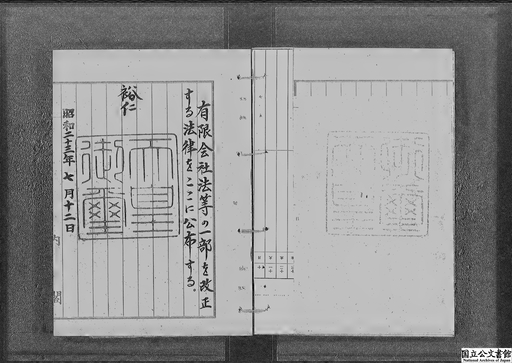 有限会社法等の一部を改正
する法律をここに公布する。
裕仁
天皇
御璽
昭和二十三年七月十二日
内閣
国立公文書館
National Archives of Japan